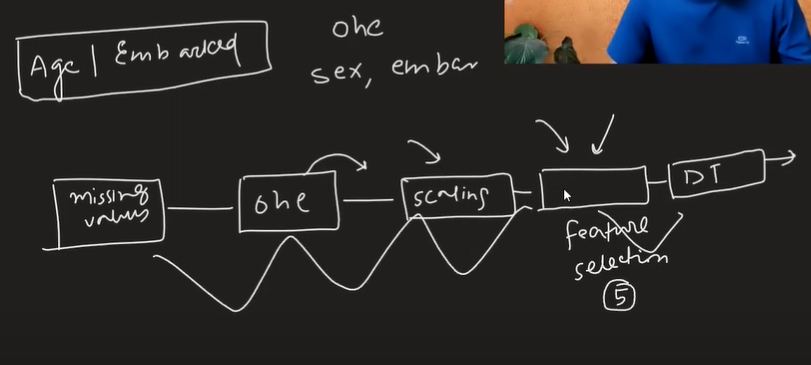 Age | Embarked
ohe
sex, embar
missing
values
ohe
scaling
DT
feature
selection
5